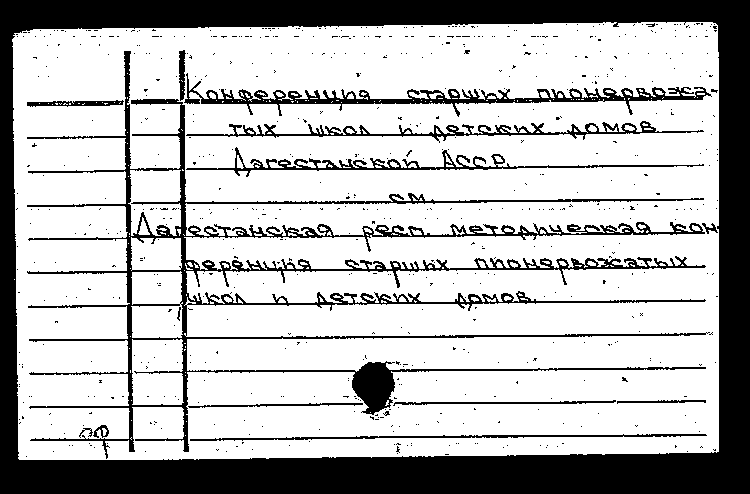 Конференция старших пионервожа-
тых школ и детских домов
Дагестанской АССР.
см.
Дагестанская респ. методическая кон-
ференция старших пионервожатых
школ и детских домов.